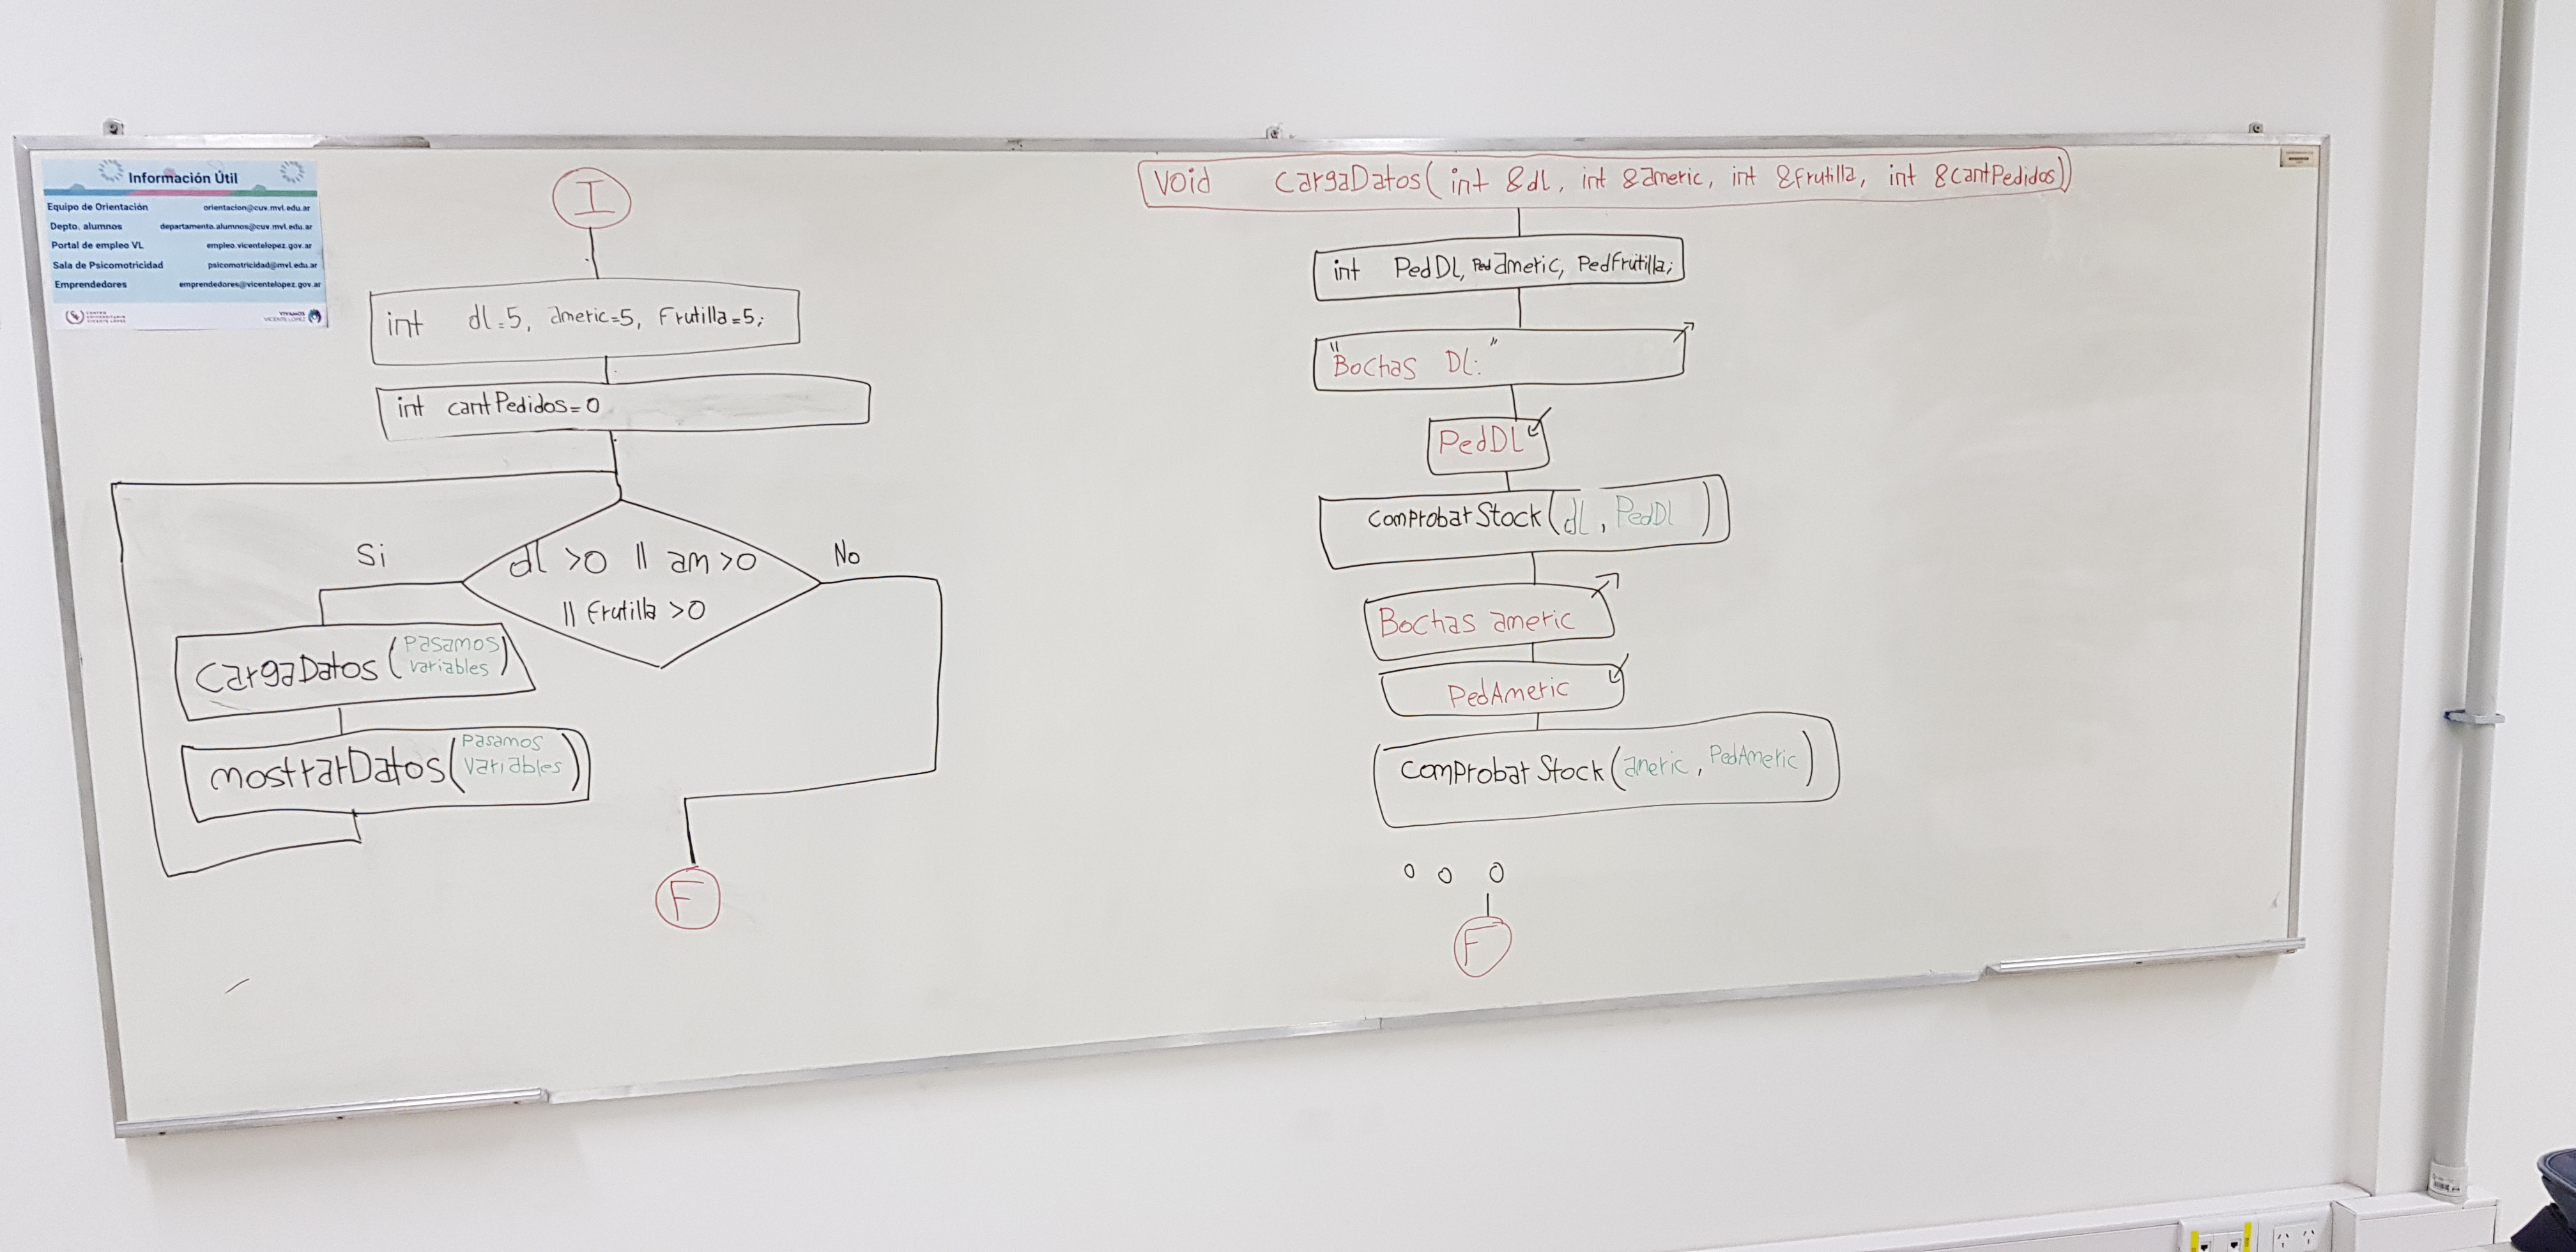 Información Útil
Equipo de Orientación orientacion@cuv.mvl.edu.ar
Depto. alumnos departamento.alumnos@cuv.mvl.edu.ar
Portal de empleo VL empleo.vicentelopez.gov.ar
Sala de Psicomotricidad psicomotricidad@mvl.edu.ar
Emprendedores emprendedores@vicentelopez.gov.ar
CENTRO UNIVERSITARIO VICENTE LÓPEZ
VIVAMOS VICENTE LÓPEZ
I
int dl=5, americ=5, Frutilla=5;
int cantPedidos=0
dl >0 || am >0
|| Frutilla >0
Si
No
CargaDatos(Pasamos
variables)
mostrarDatos(Pasamos
variables)
F
void CargaDatos(int &dl, int &americ, int &frutilla, int &cantPedidos)
int PedDL, Ped americ, PedFrutilla;
"Bochas DL:"
PedDL
comprobarStock(dl, PedDl)
Bochas americ
PedAmeric
comprobarStock(americ, PedAmeric)
o o o
F